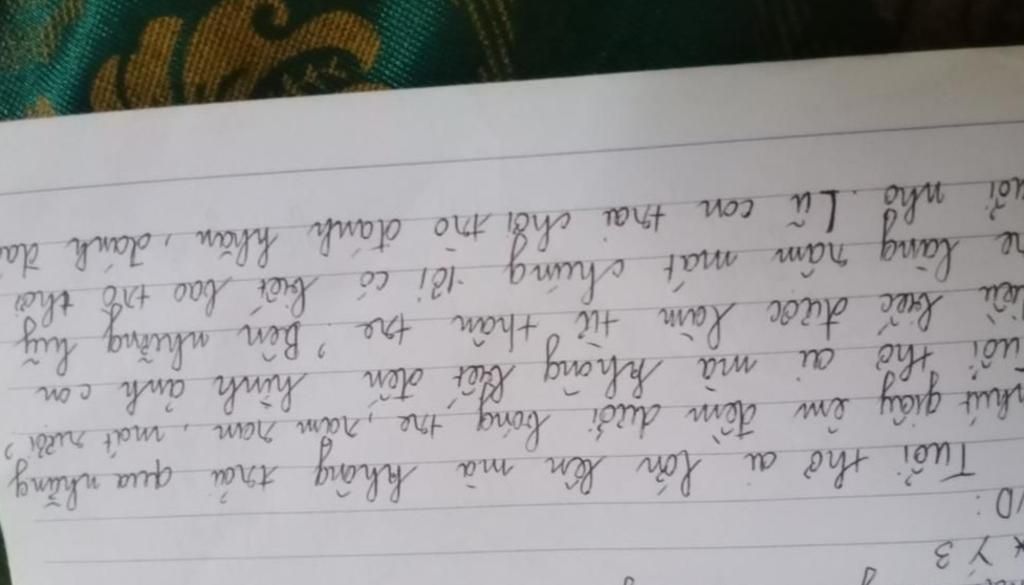 * Ý 3
VD:
Tuổi thơ ai lớn lên mà không trải qua những
phút giây êm đềm dưới bóng tre, mát rười,
tuổi thơ ai mà không biết đến hình ảnh con
diều biếc được làm từ thân tre. Bên những luỹ
tre làng râm mát chúng tôi có biết bao trò thời
tuổi nhỏ. Lũ con trai chơi trò đánh khăn, đánh